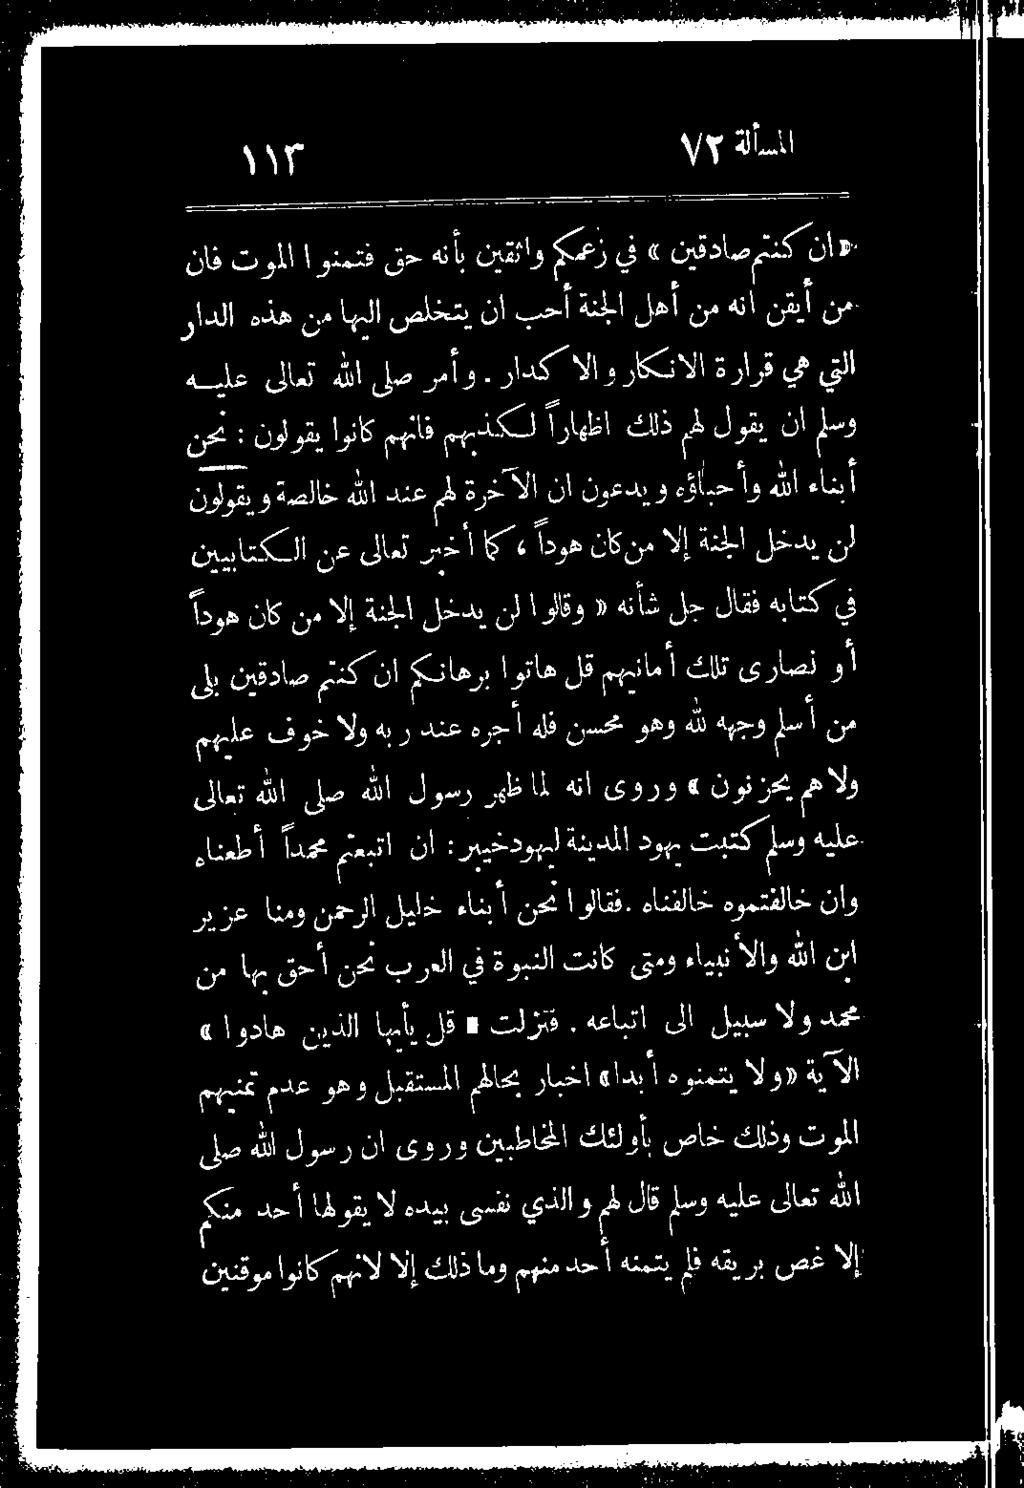 المسألة ٧٢
١١٣
«ان كنتم صادقين » في زعمكم واثقين بأنه حق فتمنوا الموت فان
من أيقن انه من أهل الجنة أحب ان يتخلص اليها من هذه الدار
التي هي قرارة الانكار والاكدار . وأمر صلى الله تعالى عليه
وسلم ان يقول لهم ذلك اظهاراً لكذبهم فانهم كانوا يقولون : نحن
أبناء الله وأحباؤه ويدعون ان الآخرة لهم عند الله خالصة ويقولون
لن يدخل الجنة إلا من كان هوداً ، كما أخبر تعالى عن الكتابيين
في كتابه فقال جل شأنه « وقالوا لن يدخل الجنة إلا من كان هوداً
أو نصارى تلك أمانيهم قل هاتوا برهانكم ان كنتم صادقين بلى
من أسلم وجهه لله وهو محسن فله أجره عند ربه ولا خوف عليهم
ولا هم يحزنون » وروى انه لما ظهر رسول الله صلى الله تعالى
عليه وسلم كتبت يهود المدينة ليهود خيبر : ان اتبعتم محمداً أطعناه
وان خالفتموه خالفناه . فقالوا نحن أبناء خليل الرحمن ومنا عزير
ابن الله والأنبياء ومتى كانت النبوة في العرب نحن أحق بها من
محمد ولا سبيل الى اتباعه . فنزلت « قل يأيها الذين هادوا »
الآية «ولا يتمنونه أبدا» اخبار بحالهم المستقبل وهو عدم تمنيهم
الموت وذلك خاص بأولئك المخاطبين وروى ان رسول الله صلى
الله تعالى عليه وسلم قال لهم والذي نفسى بيده لا يقولها أحد منكم
إلا غص بريقه فلم يتمنه أحد منهم وما ذلك إلا لانهم كانوا موقنين